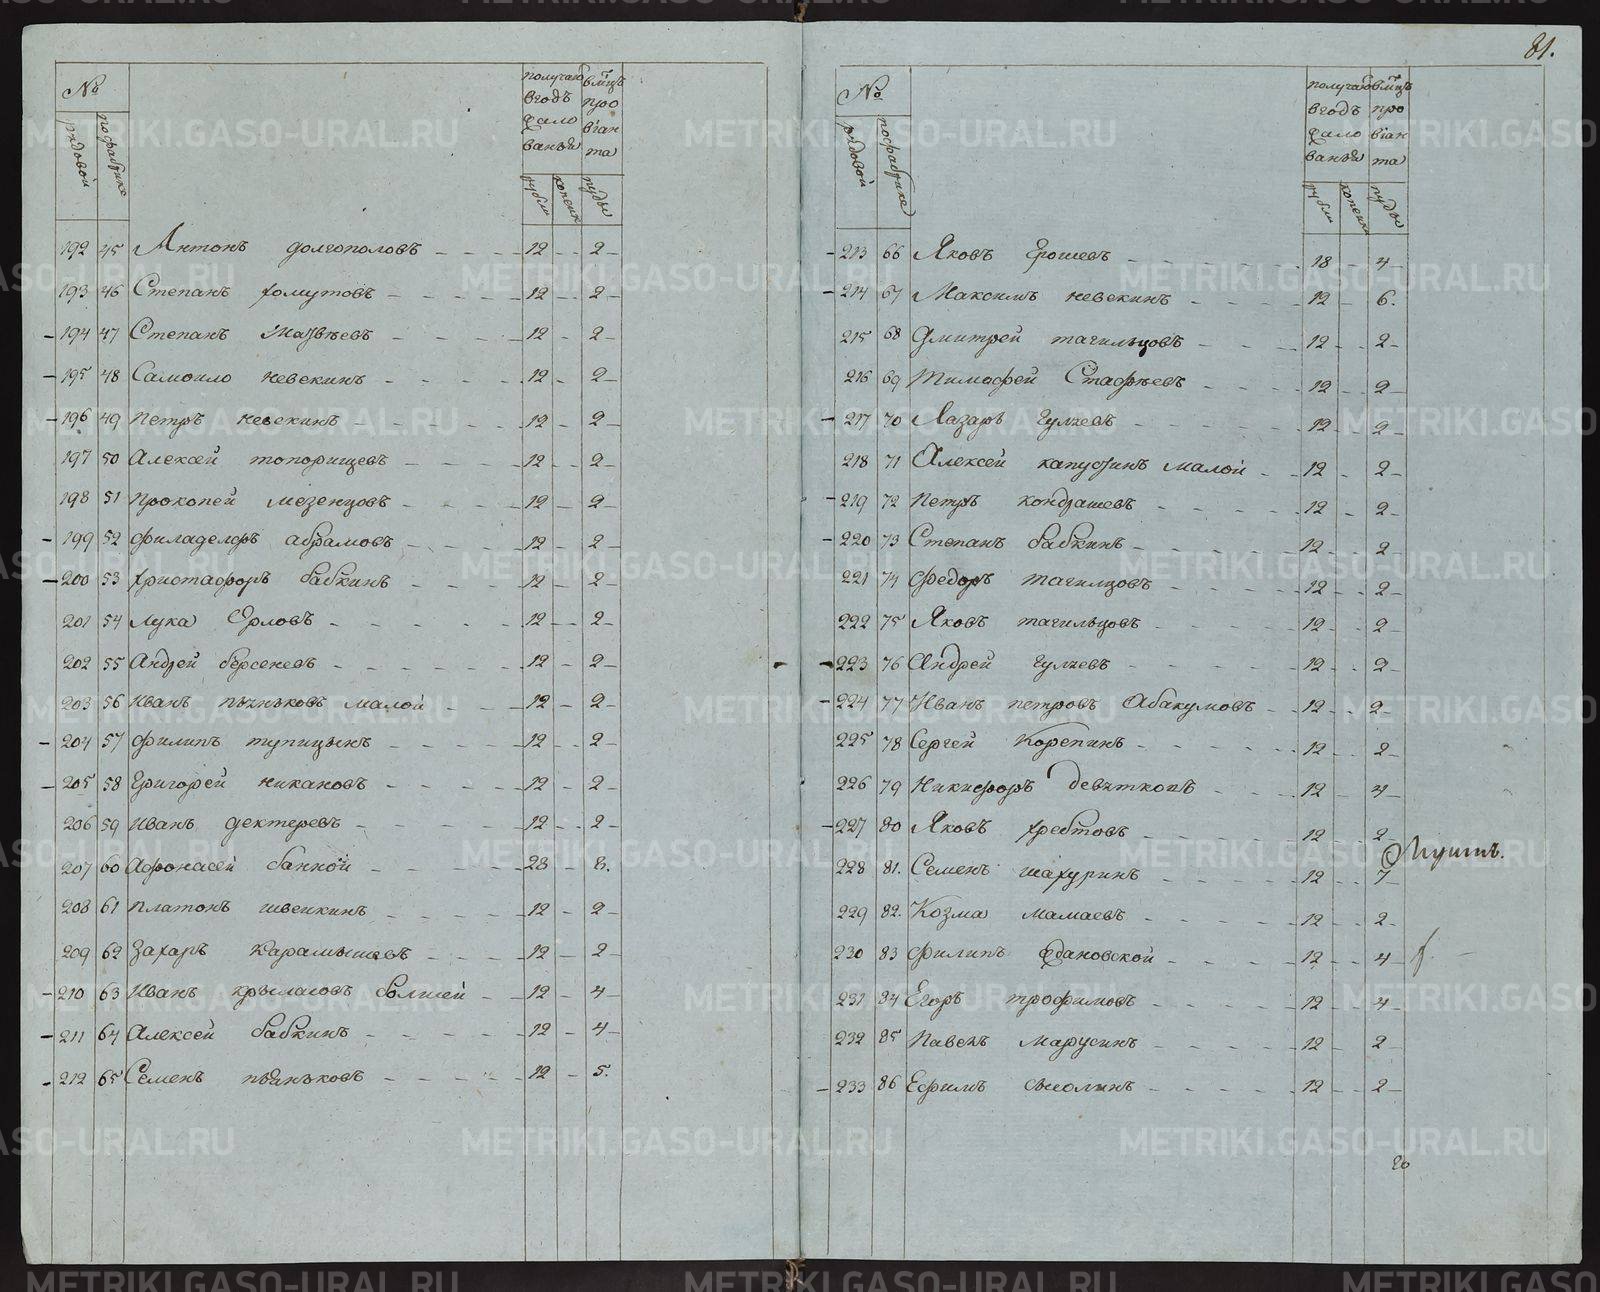 81.
№
рядовой
пофабрике
получаю
вгодъ
жало
ванья
вмцъ
про
віан
та
рубли
копеик
пуды
192 45 Антонъ долгополовъ 12 2
193 46 Степанъ хомутовъ 12 2
194 47 Степанъ Матвѣевъ 12 2
195 48 Самоило невекинъ 12 2
196 49 Петръ невекинъ 12 2
197 50 Алексей топорищевъ 12 2
198 51 Прокопей мезенцовъ 12 2
199 52 филаделфъ абрамовъ 12 2
200 53 христафоръ бабкинъ 12 2
201 54 Лука Орловъ 12 2
202 55 Андрей берсеневъ 12 2
203 56 Иванъ пьянковъ малой 12 2
204 57 филипъ тупицынъ 12 2
205 58 Григорей никановъ 12 2
206 59 Иванъ дектеревъ 12 2
207 60 Афонасей банной 28 8.
208 61 Платонъ швейкинъ 12 2
209 62 Захаръ Карамышевъ 12 2
210 63 Иванъ крыласовъ болшей 12 4
211 64 Алексей бабкинъ 12 4
212 65 Семенъ пьянковъ 12 5.
№
рядовой
пофабрике
получаю
вгодъ
жало
ванья
вмцъ
про
віан
та
рубли
копеик
пуды
213 66 Яковъ Ерошевъ 18 4
214 67 Максимъ невекинъ 12 6.
215 68 Дмитрей тагильцовъ 12 2
216 69 Тимофей Стафѣевъ 12 2
217 70 Лазарь Гулчевъ 12 2
218 71 Алексей капустинъ малой 12 2
219 72 Петръ кондрашевъ 12 2
220 73 Степанъ бабкинъ 12 2
221 74 Федоръ тагилцовъ 12 2
222 75 Яковъ тагильцовъ 12 2
223 76 Андрей Гулчевъ 12 2
224 77 Иванъ петровъ Абакумовъ 12 2
225 78 Сергей Корепинъ 12 2
226 79 Никифоръ девятковъ 12 4
227 80 Яковъ хребтовъ 12 2
228 81. Семенъ шахуринъ 12 7
229 82. Козма мамаевъ 12 2
230 83 Филипъ Ждановской 12 4
231 84 Егоръ трофимовъ 12 4
232 85 Павелъ Марусинъ 12 2
233 86 Ефимъ смолинъ 12 2
20
METRIKI.GASO-URAL.RU